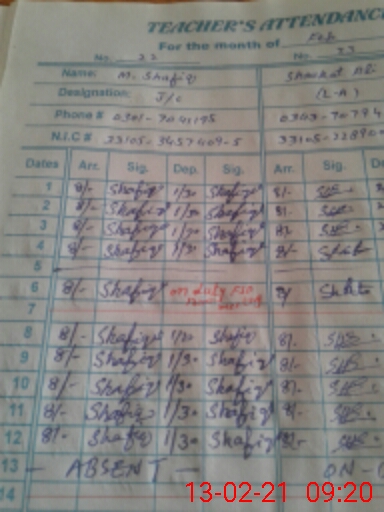 TEACHER'S ATTENDANC
For the month of Feb
No. 22 No. 23
Name: M. Shafiq Shaukat Ali
Designation: J/C (L-A)
Phone # 0301-7041195 0303-70794
N.I.C # 33105-3457409-5 33105-22890
Dates Arr. Sig. Dep. Sig. Arr. Sig. D
1 8/- Shafiq 1/30 Shafiq 8/-
2 8/- Shafiq 1/30 Shafiq 8/-
3 8/- Shafiq 1/30 Shafiq 8/-
4 8/- Shafiq 1/30 Shafiq 8/-
5
6 8/- Shafiq on duty FSD 8/
7
8 8/- Shafiq 1/30 Shafiq 8/-
9 8/- Shafiq 1/30 Shafiq 8/-
10 8/- Shafiq 1/30 Shafiq 8/-
11 8/- Shafiq 1/30 Shafiq 8/-
12 8/- Shafiq 1/30 Shafiq 8/-
13 - ABSENT - ON-
14
13-02-21 09:20